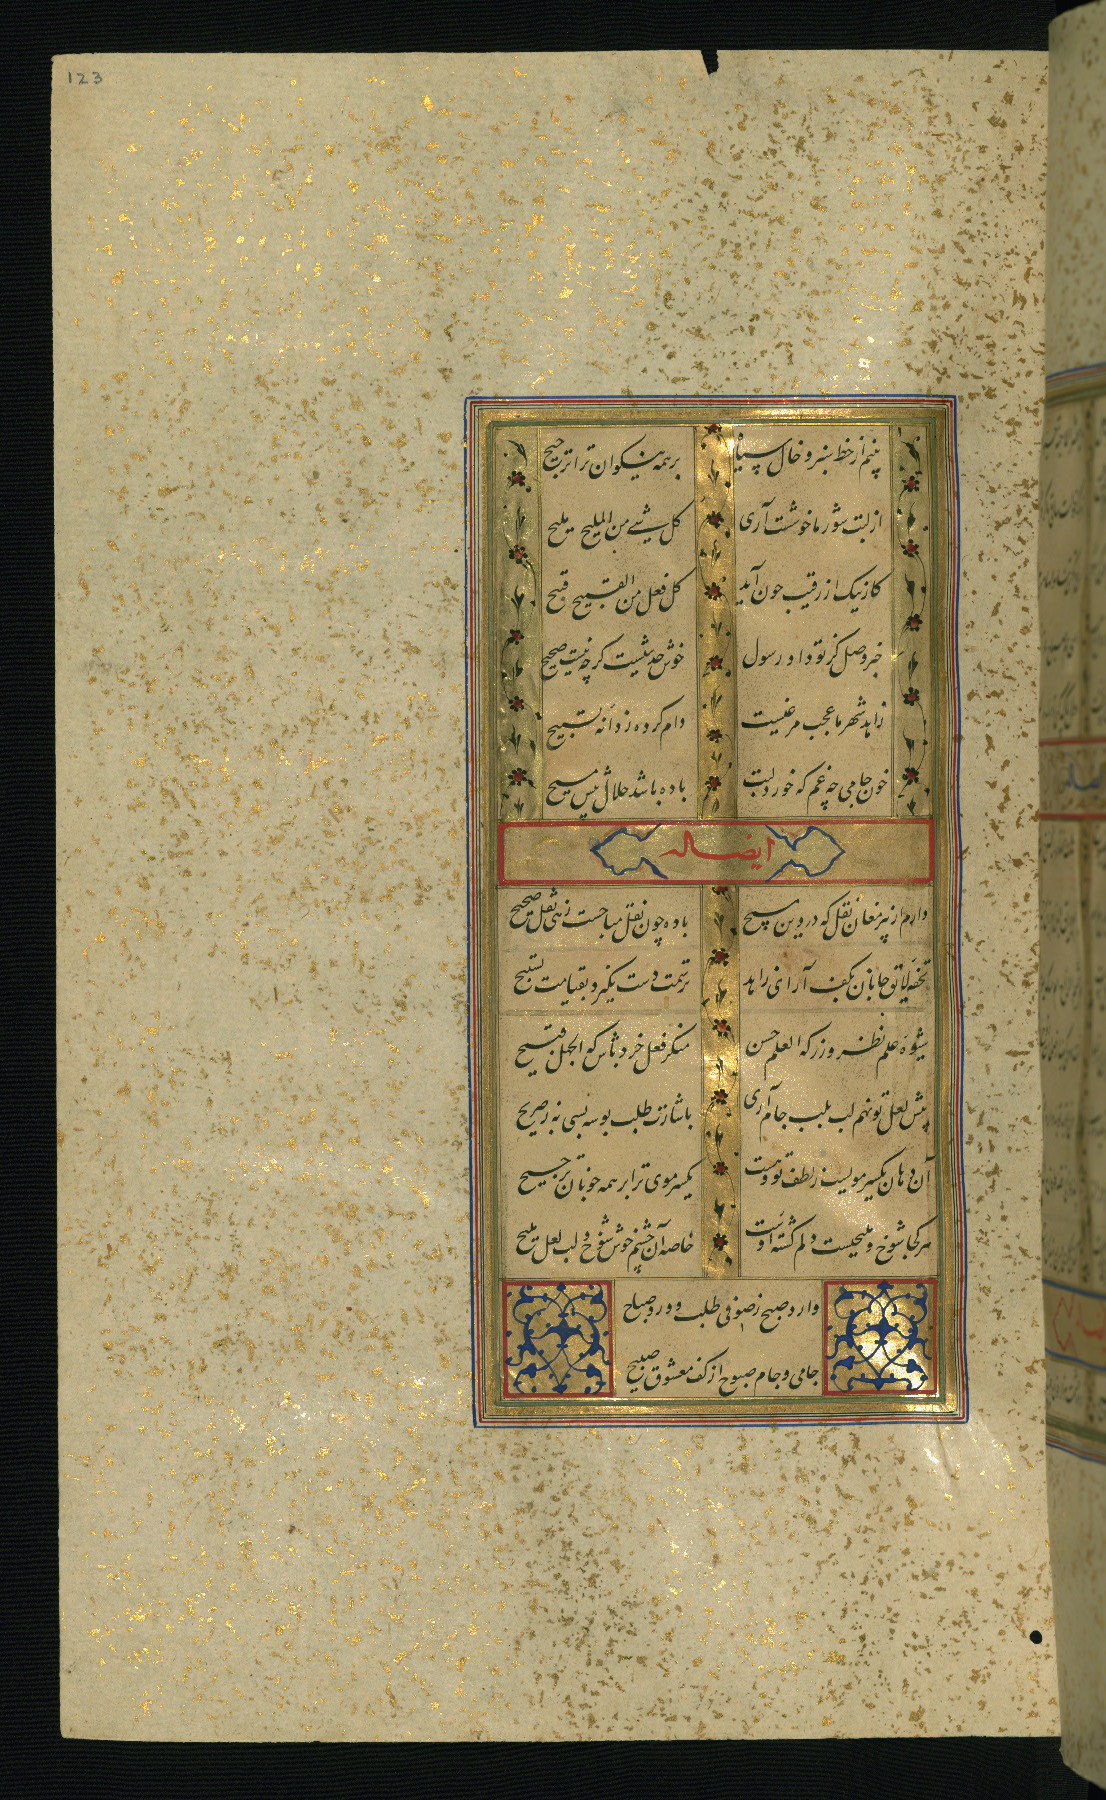 123
بینم از خط سبز و خال سیاه
بر همه نیکوان ترا ترجیح
از لبت شور ما خوشست آری
کل شیء من الملیح ملیح
کار نیک از رقیب چون آید
کل فعل من القبیح قبیح
خبر وصل کز تو داد رسول
خوش حدیثیست گر چه نیست صحیح
زاهد شهر ما عجب مرغیست
دام کرده ز دانه تسبیح
خون جامی چه غم که خورد لبت
باده باشد حلال پیش مسیح
ایضا له
دارم از پیر مغان نقل که در دین مسیح
باده چون نقل مباحست زهی نقل صحیح
تحفه لایق جانان بکف آر ای زاهد
ترسمت دست نگیرد بقیامت تسبیح
شیوه علم نظر ورز که العلم حسن
منکر فعل خرد باش که الجهل قبیح
پیش لعل تو نهم لب بلب جام آری
باشارت طلب بوسه بسی به ز صریح
آن دهان یکسر مویست ز لطف تو و هست
یکسر موی ترا بر همه خوبان ترجیح
هر کجا شوخ و ملیحیست دلم کشته اوست
خاصه آن چشم خوش شوخ و لب لعل ملیح
دارد صبح ز صوفی طلب ورد صباح
جامی و جام صبوح از کف معشوق صبیح